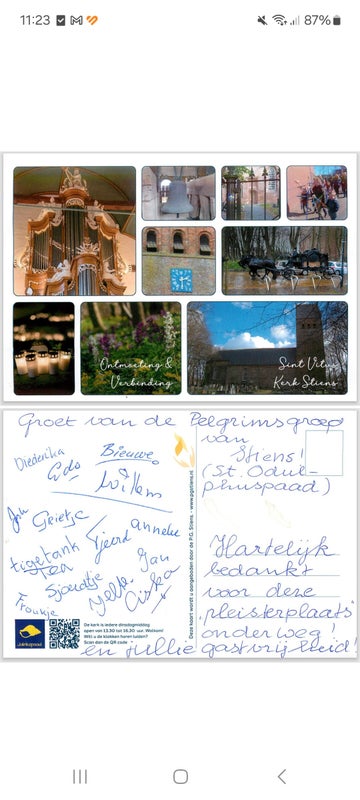 11:23
87%
Ontmoeting &
Verbinding
Sint Vitus
Kerk Stiens
Groet van de Pelgrimsgroep
van
Stiens!
(St. Odul-
phuspaad)
Diederika
Edo
Bieuwe
Willem
Grietje
Tjeerd
anneke
Sjoerdtje
Jan
Jelle
Ciska
Froukje
Hartelijk
bedankt
voor deze
"pleisterplaats"
onderweg!
en jullie gastvrijheid!
Deze kaart wordt u aangeboden door de P.G. Stiens - www.pgstiens.nl
Jabikspaad
De kerk is iedere dinsdagmiddag
open van 13.30 tot 16.30 uur. Welkom!
Wilt u de klokken horen luiden?
Scan dan de QR code